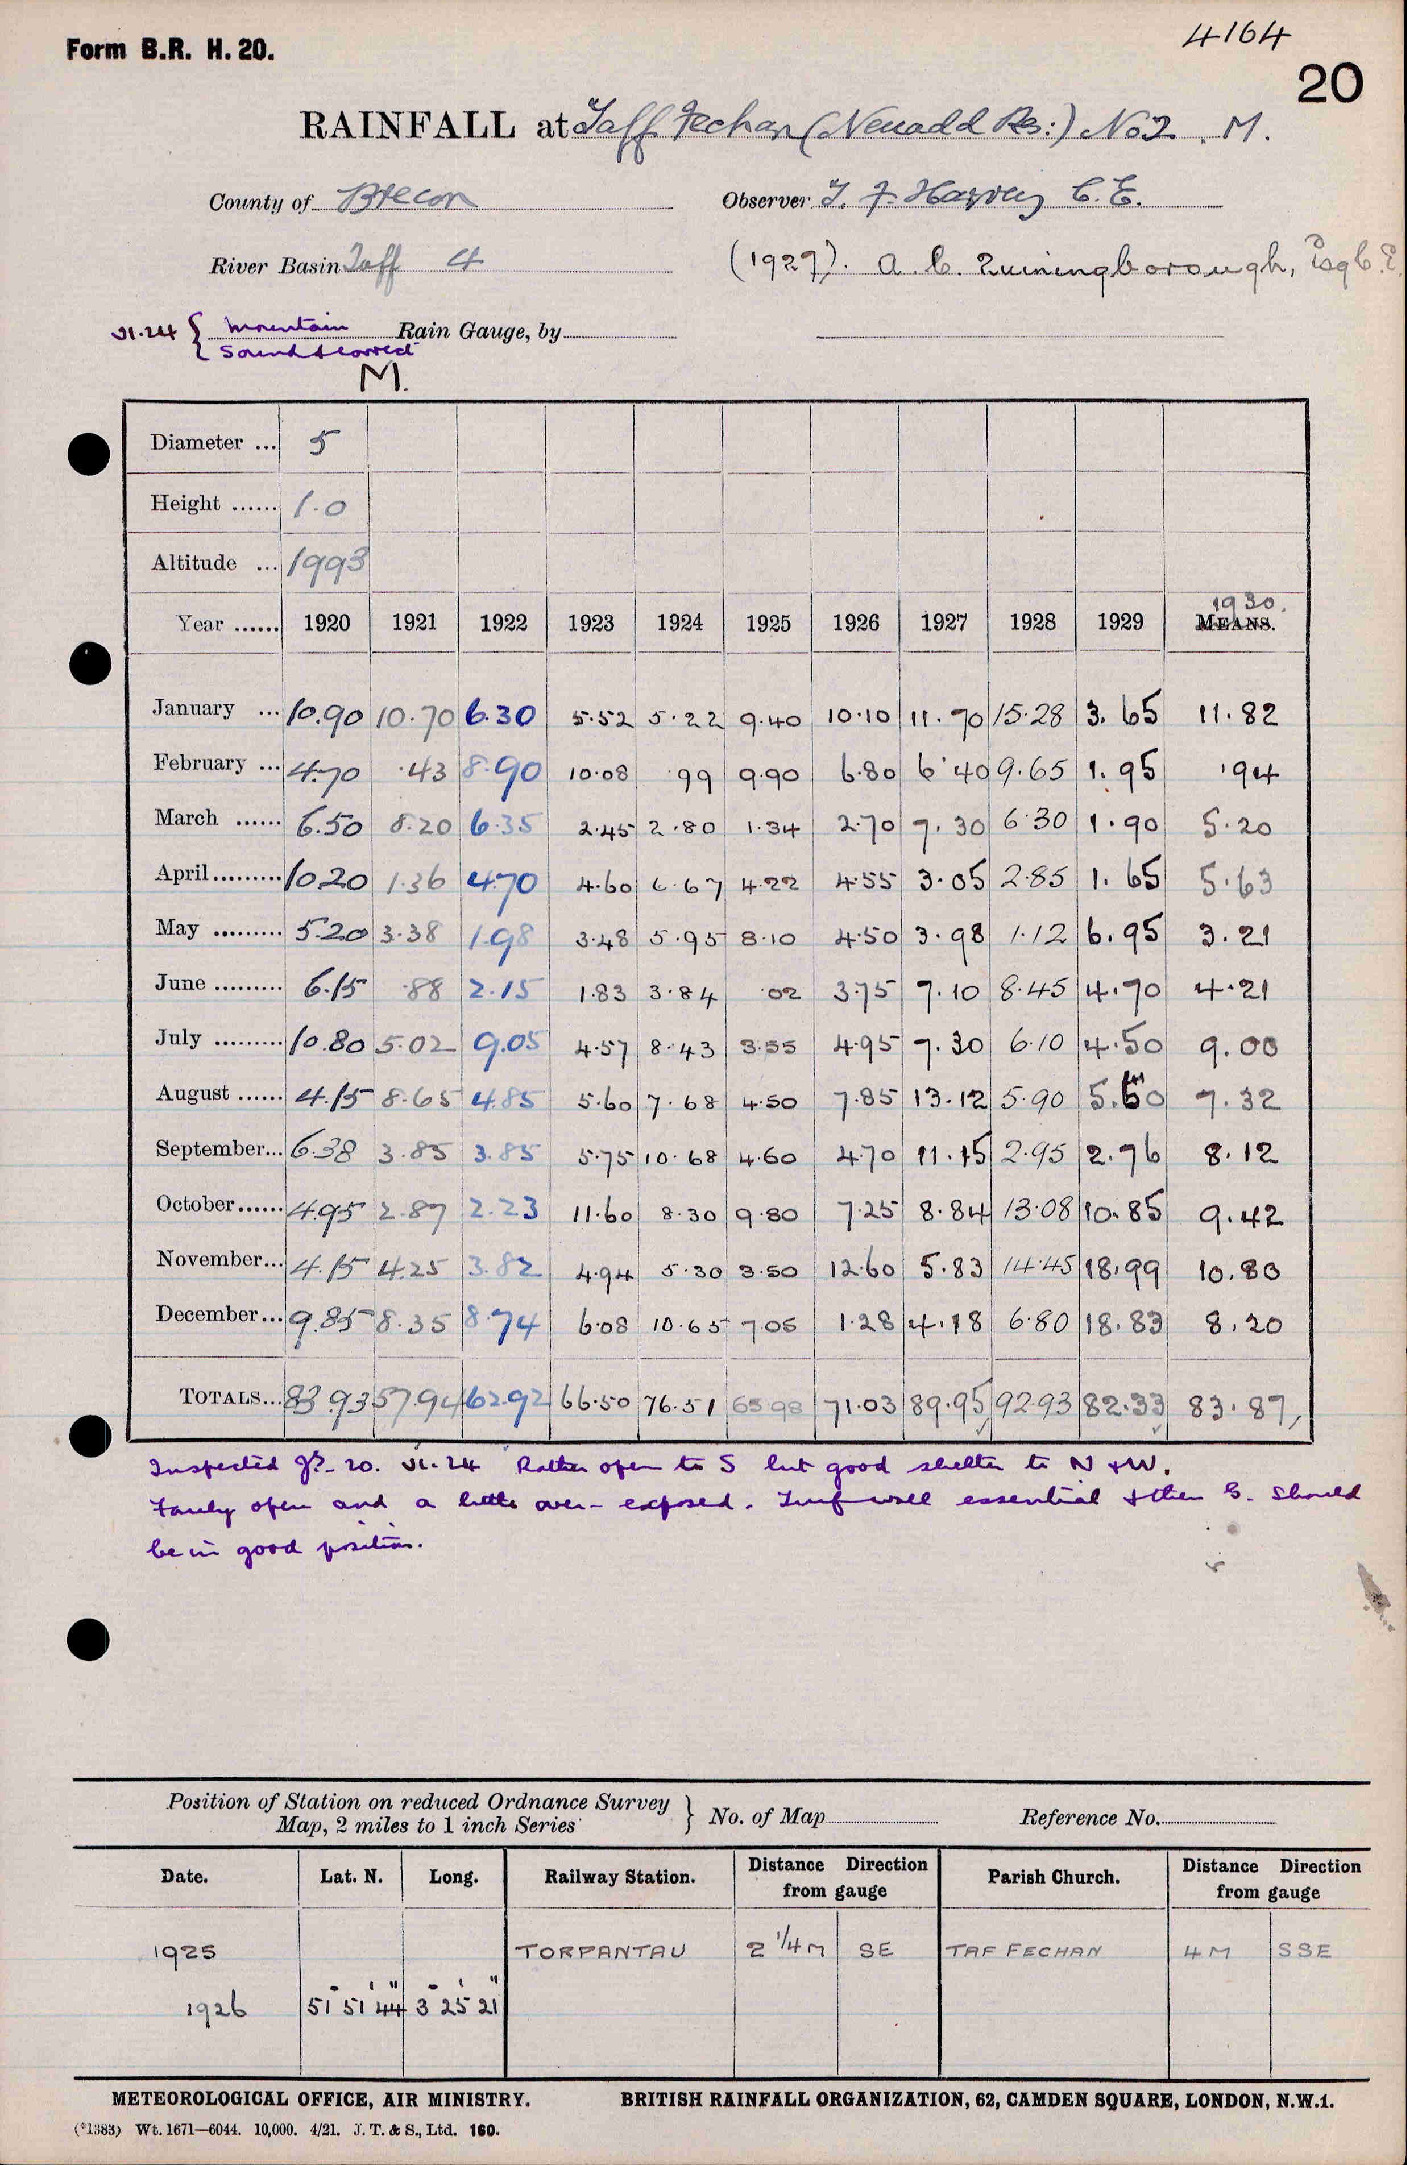 Form B.R. H. 20.
4164
20
RAINFALL at Taff Fechan (Neuadd Res:) No 2. M.
County of Brecon Observer T. F. Harvey C.E.
River Basin Taff 4 (1927). A. C. Quiningborough, Esq C.E.
VI.24 { Mountain Rain Gauge, by
Sound & correct
M.
Diameter ... 5
Height ...... 1.0
Altitude ... 1993
1930.
Year ...... 1920 1921 1922 1923 1924 1925 1926 1927 1928 1929 MEANS.
January ... 10.90 10.70 6.30 5.52 5.22 9.40 10.10 11.70 15.28 3.65 11.82
February ... 4.70 .43 8.90 10.08 .99 9.90 6.80 6.40 9.65 1.95 .94
March ...... 6.50 8.20 6.35 2.45 2.80 1.34 2.70 7.30 6.30 1.90 5.20
April......... 10.20 1.36 4.70 4.60 6.67 4.22 4.55 3.05 2.85 1.65 5.63
May ......... 5.20 3.38 1.98 3.48 5.95 8.10 4.50 3.98 1.12 6.95 3.21
June ......... 6.15 .88 2.15 1.83 3.84 .02 3.75 7.10 8.45 4.70 4.21
July ......... 10.80 5.02 9.05 4.57 8.43 3.55 4.95 7.30 6.10 4.50 9.00
August ...... 4.15 8.65 4.85 5.60 7.68 4.50 7.85 13.12 5.90 5.60 7.32
September... 6.38 3.85 3.85 5.75 10.68 4.60 4.70 11.15 2.95 2.76 8.12
October...... 4.95 2.87 2.23 11.60 8.30 9.80 7.25 8.84 13.08 10.85 9.42
November... 4.15 4.25 3.82 4.94 5.30 3.50 12.60 5.83 14.45 18.99 10.80
December... 9.85 8.35 8.74 6.08 10.65 7.05 1.28 4.18 6.80 18.83 8.20
TOTALS... 83.93 57.94 62.92 66.50 76.51 65.98 71.03 89.95 92.93 82.33 83.87
Inspected VI.24 Rather open to S but good shelter to N & W.
Fairly open and a little over-exposed. Turf wall essential & then G. should
be in good position.
Position of Station on reduced Ordnance Survey
Map, 2 miles to 1 inch Series } No. of Map Reference No.
Date. Lat. N. Long. Railway Station. Distance Direction from gauge Parish Church. Distance Direction from gauge
1925 TORPANTAU 2 1/4 M SE TAF FECHAN 4 M SSE
1926 51° 51' 44" 3° 25' 21"
METEOROLOGICAL OFFICE, AIR MINISTRY. BRITISH RAINFALL ORGANIZATION, 62, CAMDEN SQUARE, LONDON, N.W.1.
(*1383) Wt. 1671—6044. 10,000. 4/21. J. T. & S., Ltd. 160.